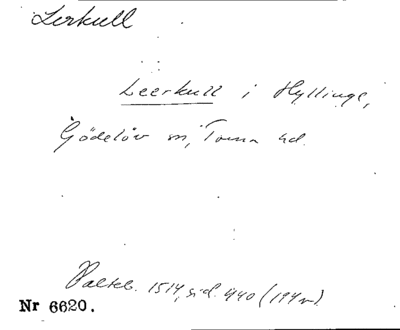 Lerkull
Leerkull i Hyllinge,
Gödelöv sn, Torna hd.
Palteb. 1514, sid. 440 (194v).
Nr 6620.